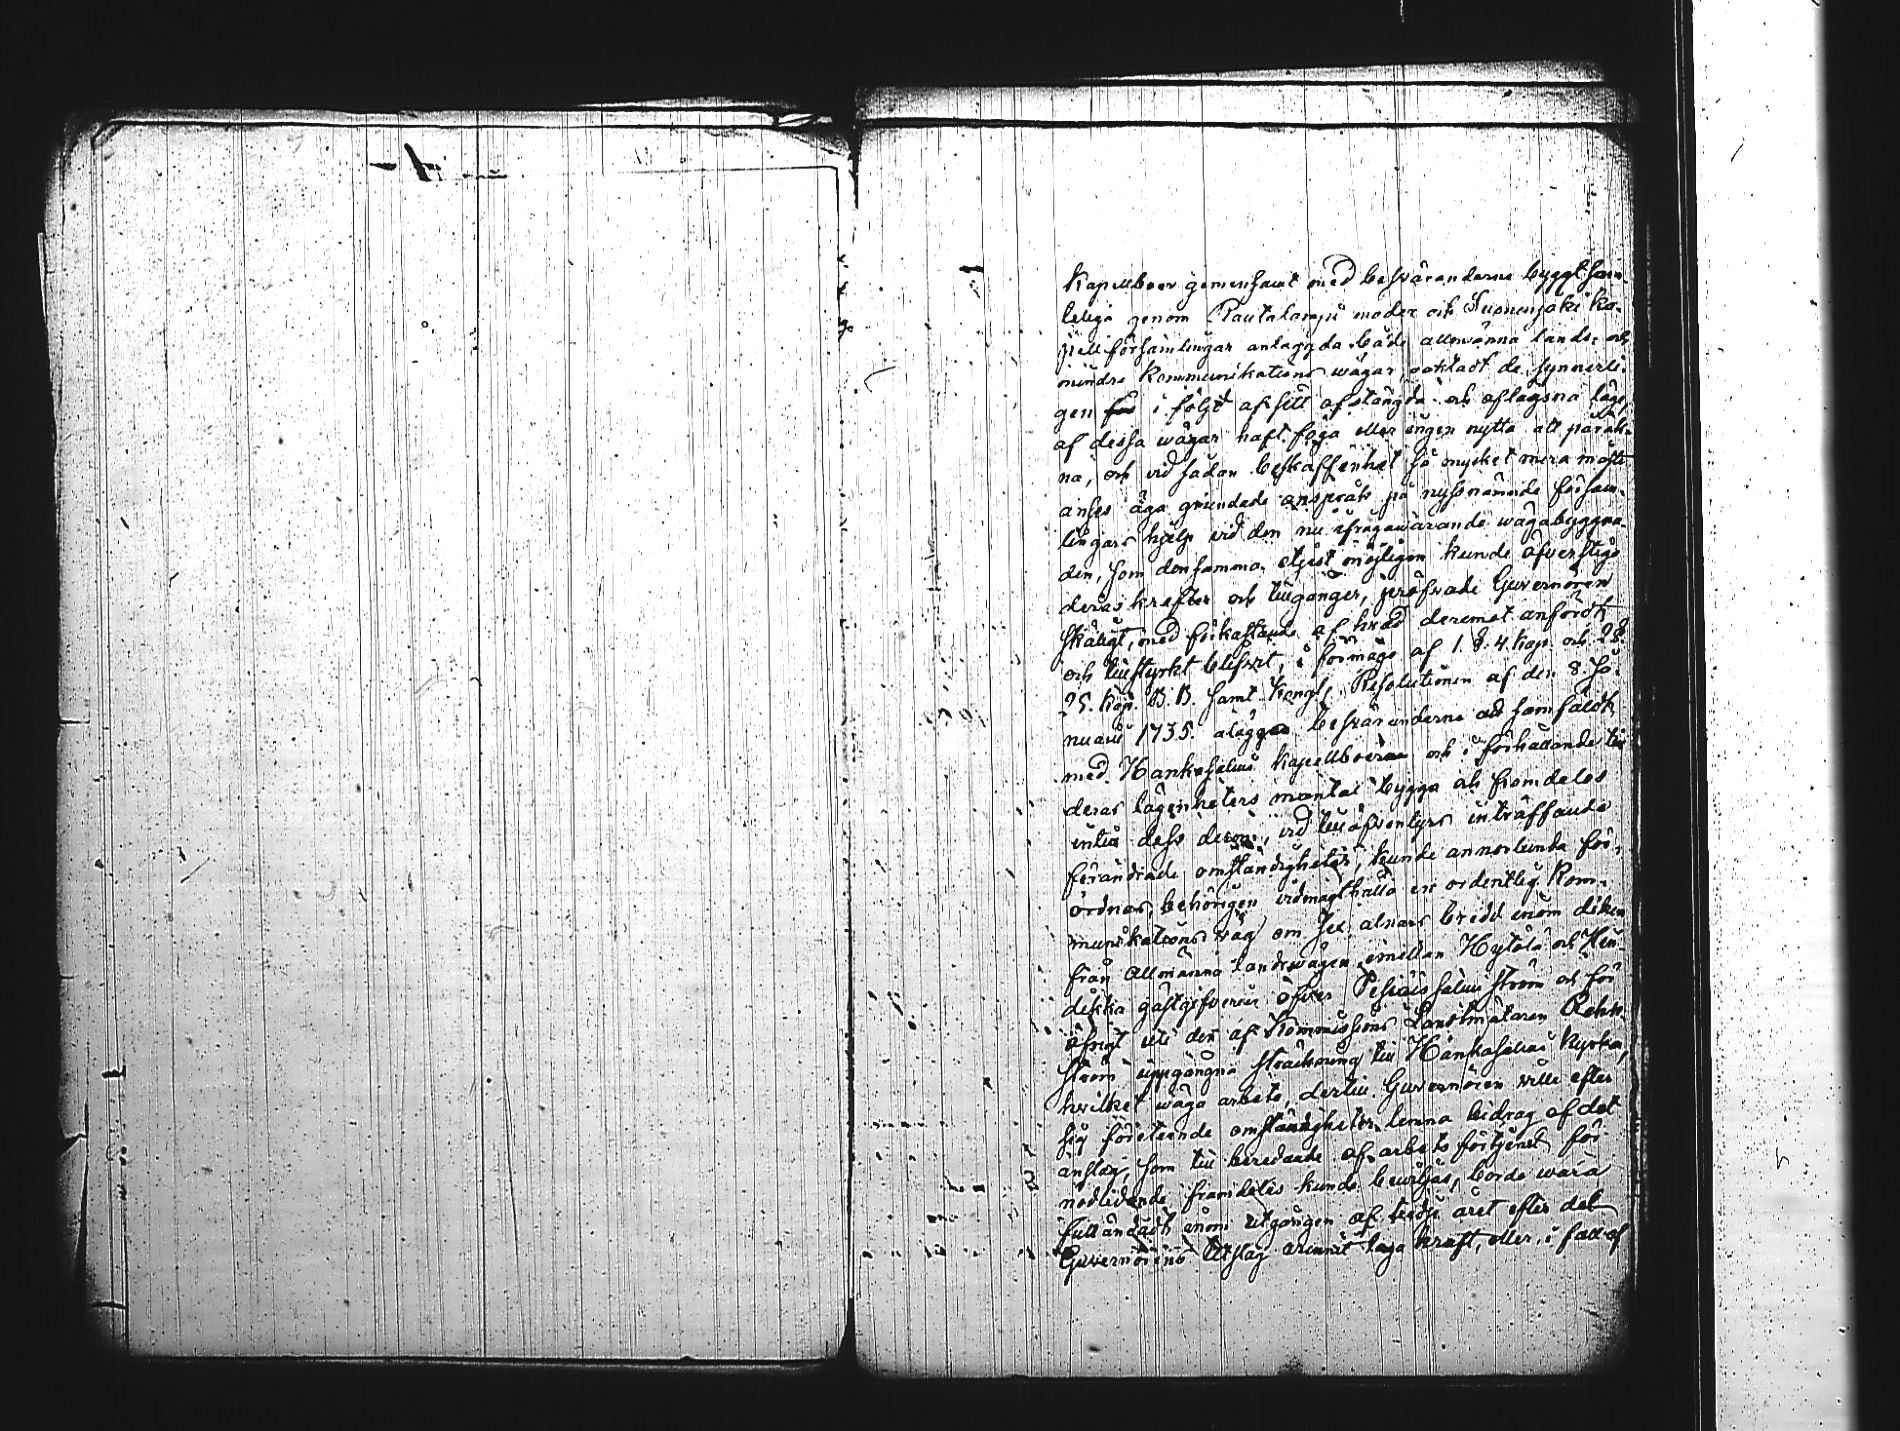 Kapellboer gemensamt med besväranderne byggt sam-
teliga genom Rautalampi moder och Suonenjoki ka-
pell församlingar anlaggda både allmänna lands- och
mindre Kommunikations wägar, oaktadt de, synnerli-
gen i följd af sitt afstängda och aflägsna läge,
af dessa wägar haft föga eller ingen nytta att påräk-
na, och vid sådan beskaffenhet så mycket mera måste
anses äga grundade anspråk på nyssnämnde försam-
lingars hjelp vid den nu ifrågawarande wägabyggna-
den, som densamma eljest möjligen kunde öfverstiga
deras krafter och tillgånger, pröfvade Guvernören
skäligt, med förkastande af hvad deremot anfördt
och tillstyrkt blifvit, i förmågo af 1. §. 4. Kap. och 28.
25. Kap. B.B. samt Kongl. Resolutionen af den 8 Ja-
nuarii 1735. ålägga besväranderne att samfäldt
med Hankasalmi Kapellboerne och i förhållande till
deras lägenheters mantal bygga och framdeles
intill dess derom, vid tilläfventyrs inträffande
förändrade omständigheter, kunde annorlunda för-
ordnas, behörigen vidmagthålla en ordentlig Kom-
munikations väg om sex alnars bredd inom diken
från Allmänna landsvägen emellan Hytölä och Kin-
dikka gästgifverier öfver Lesiäissalmi ström och för
öfrigt uti den af Kommissions Landtmätaren Rehn-
ström uppgångna sträckning till Hankasalmi Kyrka,
hvilket wäga arbete, dertill Guvernören ville efter
sig företeende omständigheter lemna bidrag af det
anslag, som till beredande af arbets förtjenst för
nödlidande framdeles kunde beviljas, borde wara
fulländadt inom utgången af tredje året efter det
Guvernörens Utslag vunnit laga kraft, eller, i fall af